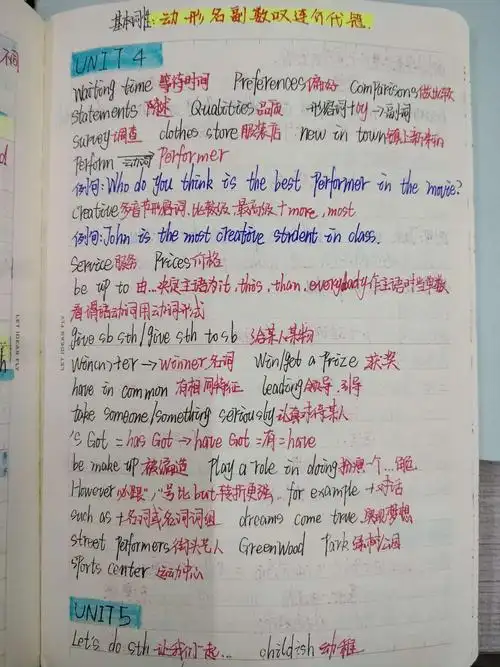 基本词性: 动形名副数叹连介代冠.
UNIT 4
Waiting time 等待时间 Preferences 偏好 Comparisons 做比较
Statements 陈述 Qualities 品质 形容词+ly→副词
survey 调查 clothes store 服装店 new in town 镇上新来的
Perform 动词 Performer
例句: Who do you think is the best Performer in the movie?
Creative 多音节形容词. 比较级. 最高级+more, most
例句: John is the most creative student in class.
Service 服务 Prices 价格
be up to 由...决定 主语为it, this, than, everybody作主语时当单数
看谓语动词用动词形式
give sb sth/give sth to sb 给某人某物
win → winner 名词 Win/get a Prize 获奖
have in common 有相同特征 leading 领导.引导
take someone/something seriously 认真对待某人
's Got = has Got → have Got =有= have
be make up 被编造 Play a role in doing 扮演一个...角色
However 必跟"," 号比but 转折更强.. for example +对话
such as +名词或名词词组 dreams come true 实现梦想
street Performers 街头艺人 GreenWood Park 绿树公园
Sports center 运动中心
UNIT 5
Let's do sth 让我们一起... childish 幼稚
LET IDEAS FLY